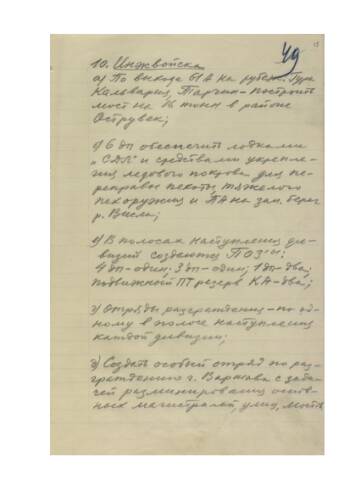 49
10. Инжвойска
а) По выходе 61А на рубеж Гура
Кальвария, Тарчин - построить
мост на 16 тонн в районе
Острувек;
б) 6 дп обеспечить лодками
„СДЛ" и средствами укрепле-
ния ледового покрова для пе-
реправы пехоты, тяжелого
пехоружия и ПА на зап. берег
р. Висла;
в) В полосах наступления ди-
визий создаются ПОЗ'ы:
4 дп - один; 3 дп - один, 1 дп - два;
подвижный ПТ резерв КА - два;
г) Отряды разграждения - по од-
ному в полосе наступления
каждой дивизии;
д) Создать особый отряд по раз-
граждению г. Варшава с зада-
чей разминирования основ-
ных магистралей, улиц, мостов